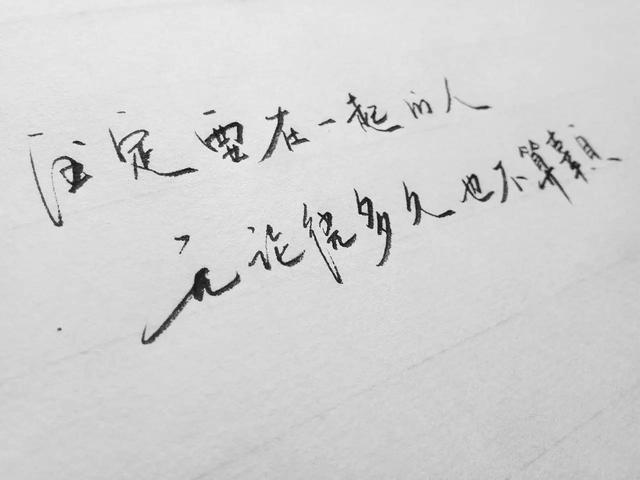 注定要在一起的人
无论绕多久也不算